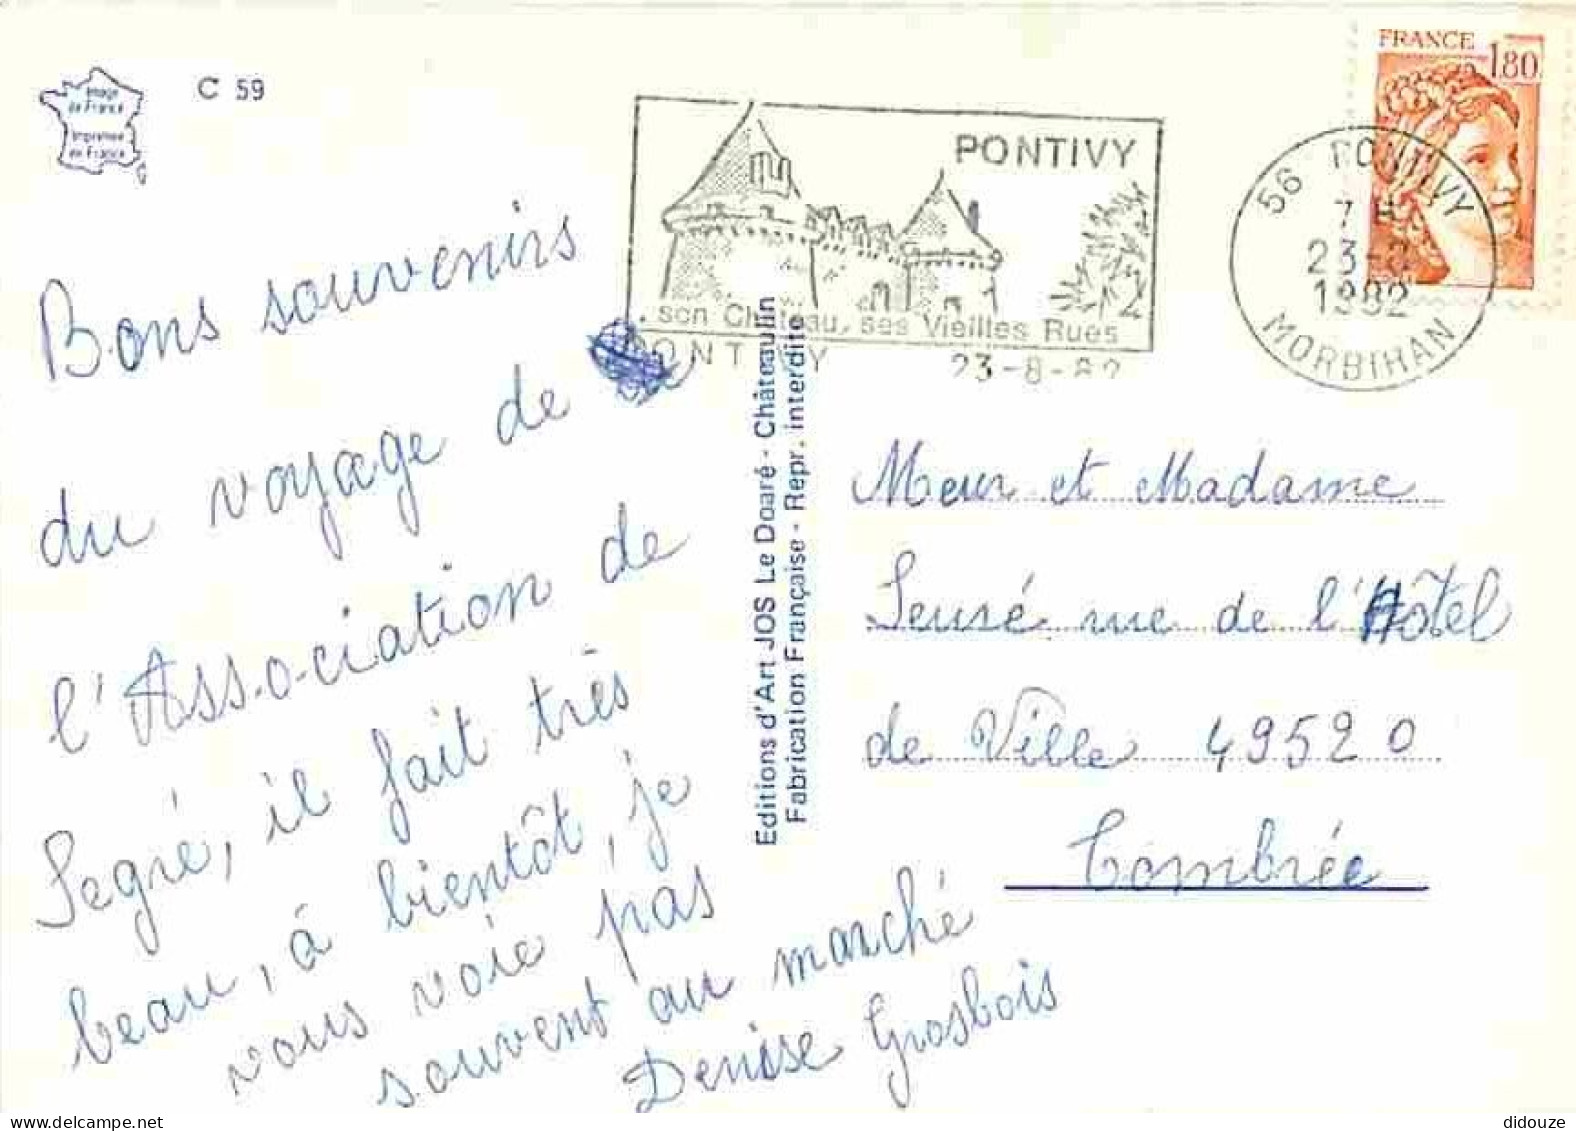 Image
de France
Imprimée
en France
C 59
PONTIVY
son Château, ses Vieilles Rues
PONTIVY 23-8-82
FRANCE 1,80
56 PONTIVY
7 H
23-8
1982
MORBIHAN
Bons souvenirs
du voyage de
l'Association de
Segré, il fait très
beau, à bientôt, je
vous voie pas
souvent au marché
Denise Grosbois
Editions d'Art JOS Le Doaré - Châteaulin
Fabrication Française - Repr. interdite
Meur et Madame
Seuré rue de l'Hôtel
de Ville 49520
Combrée
didouze